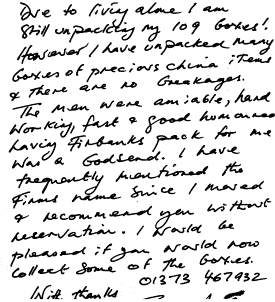 Due to living alone I am
still unpacking my 109 boxes!
However I have unpacked many
boxes of precious china items
& there are no breakages.
The men were amiable, hard
working, fast & good humoured
having Firbanks pack for me
was a Godsend. I have
frequently mentioned the
Firms name since I moved
& recommend you without
reservation. I would be
pleased if you would now
collect some of the boxes.
With thanks 01373 467932